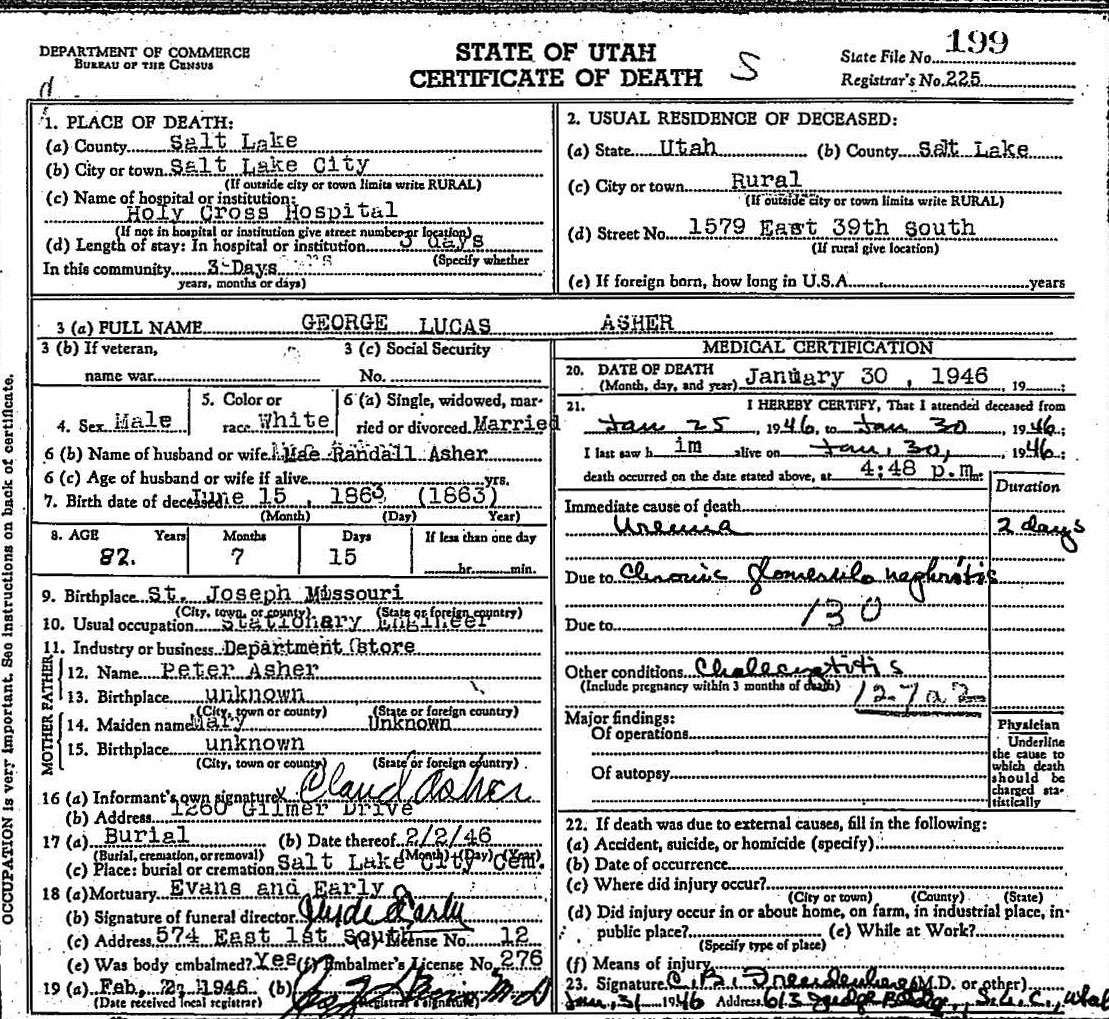 DEPARTMENT OF COMMERCE
BUREAU OF THE CENSUS
STATE OF UTAH
CERTIFICATE OF DEATH
S
State File No. 199
Registrar's No. 225
d
1. PLACE OF DEATH:
(a) County Salt Lake
(b) City or town Salt Lake City
(If outside city or town limits write RURAL)
(c) Name of hospital or institution:
Holy Cross Hospital
(If not in hospital or institution give street number or location)
(d) Length of stay: In hospital or institution 3 days
(Specify whether
In this community 3 Days
years, months or days)
2. USUAL RESIDENCE OF DECEASED:
(a) State Utah (b) County Salt Lake
(c) City or town Rural
(If outside city or town limits write RURAL)
(d) Street No. 1579 East 39th South
(If rural give location)
(e) If foreign born, how long in U.S.A. years
3 (a) FULL NAME GEORGE LUCAS ASHER
3 (b) If veteran, 3 (c) Social Security
name war No.
4. Sex Male 5. Color or race White 6 (a) Single, widowed, married or divorced Married
6 (b) Name of husband or wife Mae Randall Asher
6 (c) Age of husband or wife if alive yrs.
7. Birth date of deceased June 15, 1863 (1863)
(Month) (Day) Year)
8. AGE Years Months Days If less than one day
82. 7 15 hr. min.
9. Birthplace St. Joseph Missouri
(City, town, or county) (State or foreign country)
10. Usual occupation Stationary Engineer
11. Industry or business Department Store
FATHER
12. Name Peter Asher
13. Birthplace unknown
(City, town or county) (State or foreign country)
MOTHER
14. Maiden name Mary Unknown
15. Birthplace unknown
(City, town or county) (State or foreign country)
16 (a) Informant's own signature x Claud Asher
(b) Address 1260 Gilmer Drive
17 (a) Burial (b) Date thereof 2/2/46
(Burial, cremation, or removal) (Month) (Day) (Year)
(c) Place: burial or cremation Salt Lake City Cem.
18 (a) Mortuary Evans and Early
(b) Signature of funeral director Clyde Early
(c) Address 574 East 1st South (d) License No. 12
(e) Was body embalmed? Yes (f) Embalmer's License No. 276
19 (a) Feb. 2, 1946 (b) M.D
(Date received local registrar) Registrar's signature
MEDICAL CERTIFICATION
20. DATE OF DEATH
(Month, day, and year) January 30, 1946 , 19 ;
21. I HEREBY CERTIFY, That I attended deceased from
Jan 25, 1946, to Jan 30 1946;
I last saw h im alive on Jan, 30, 1946;
death occurred on the date stated above, at 4:48 p.m
Duration
Immediate cause of death
Uremia 2 days
Due to Chronic glomerulo nephritis
Due to 130
Other conditions Cholecystitis
(Include pregnancy within 3 months of death) 127a2
Major findings:
Of operations
Of autopsy
Physician
Underline
the cause to
which death
should be
charged sta-
tistically
22. If death was due to external causes, fill in the following:
(a) Accident, suicide, or homicide (specify)
(b) Date of occurrence
(c) Where did injury occur?
(City or town) (County) (State)
(d) Did injury occur in or about home, on farm, in industrial place, in
public place? (e) While at Work?
(Specify type of place)
(f) Means of injury
23. Signature (M.D. or other)
Jan, 31, 1946 Address 613 Judge Bldg, S.L.C., Utah
OCCUPATION is very important. See instructions on back of certificate.